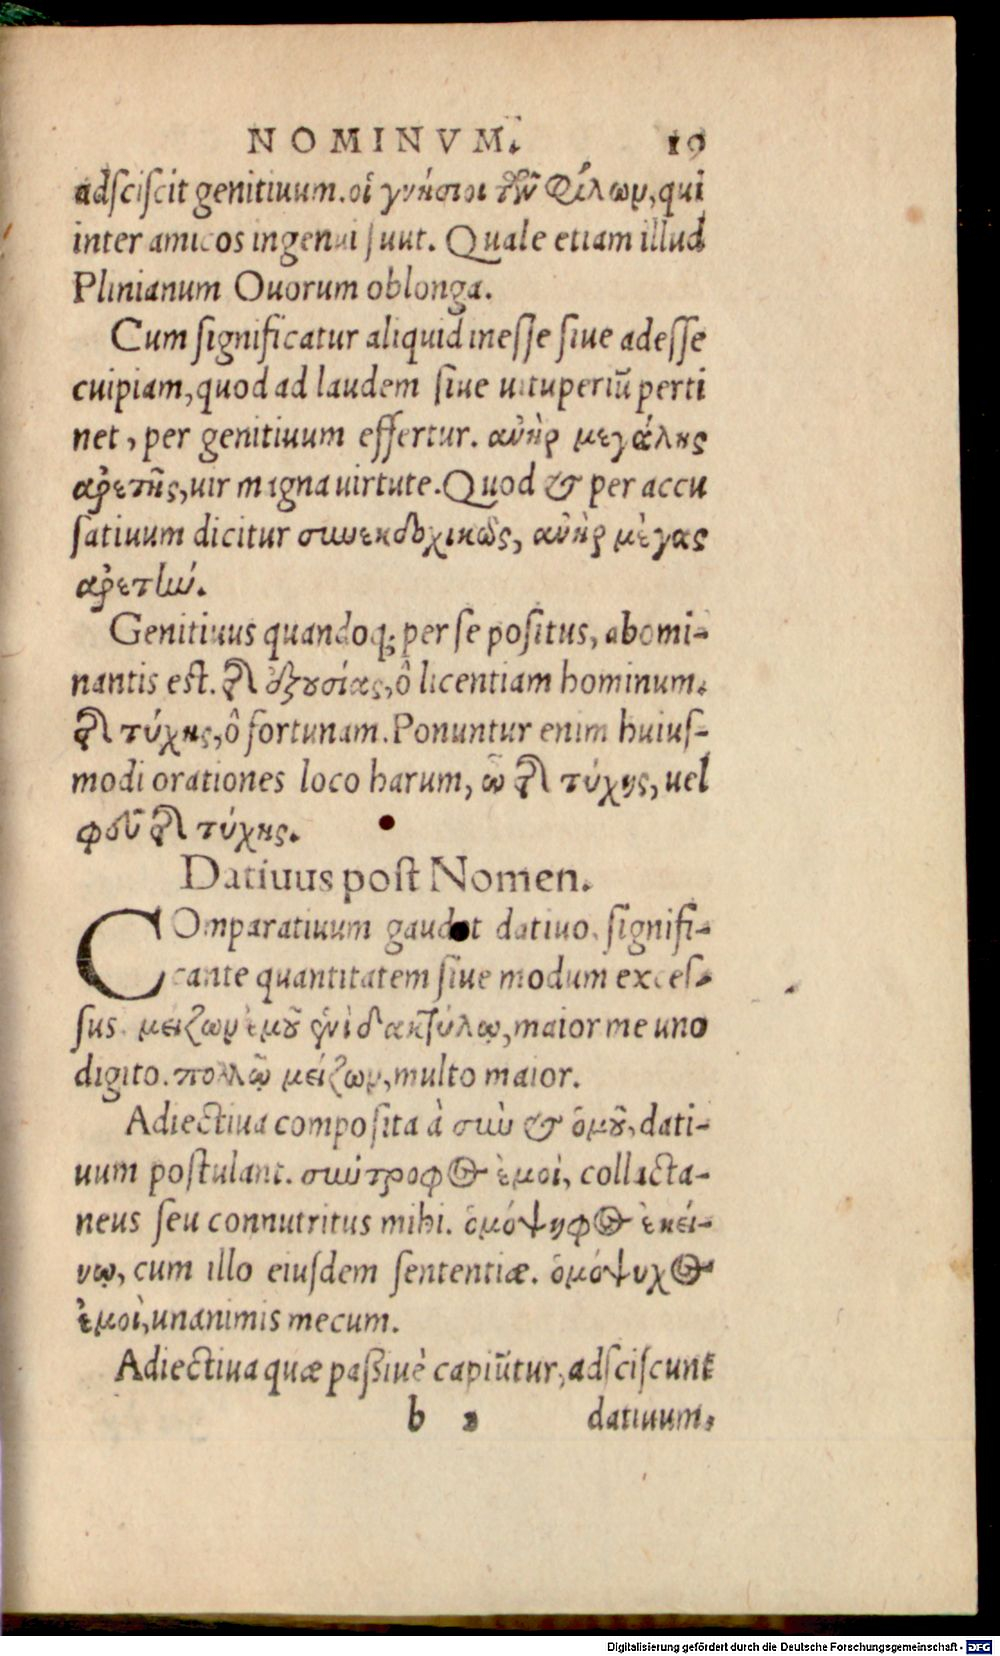 NOMINVM. 19
adsciscit genitiuum. οἱ γνήσιοι τῶν φίλων, qui
inter amicos ingenui sunt. Quale etiam illud
Plinianum Ouorum oblonga.
Cum significatur aliquid inesse siue adesse
cuipiam, quod ad laudem siue uituperiū perti
net, per genitiuum effertur. ἀνὴρ μεγάλης
ἀρετῆς, uir magna uirtute. Quod & per accu
satiuum dicitur συνεκδοχικῶς, ἀνὴρ μέγας
ἀρετὴν.
Genitiuus quandoq; per se positus, abomi-
nantis est. τῆς ἐξουσίας, ô licentiam hominum.
τῆς τύχης, ô fortunam. Ponuntur enim huius-
modi orationes loco harum, ὢ τῆς τύχης, uel
φεῦ τῆς τύχης.
Datiuus post Nomen.
COmparatiuum gaudet datiuo, signifi-
cante quantitatem siue modum exces-
sus. μείζων ἐμοῦ ἑνὶ δακτύλῳ, maior me uno
digito. πολλῷ μείζων, multo maior.
Adiectiua composita à σὺν & ὁμοῦ, dati-
uum postulant. σύντροφος ἐμοὶ, collacta-
neus seu connutritus mihi. ὁμόψηφος ἐκεί-
νῳ, cum illo eiusdem sententiæ. ὁμόψυχος
ἐμοὶ, unanimis mecum.
Adiectiua quæ paßiuè capiūtur, adsciscunt
b 2 datiuum.
Digitalisierung gefördert durch die Deutsche Forschungsgemeinschaft - DFG